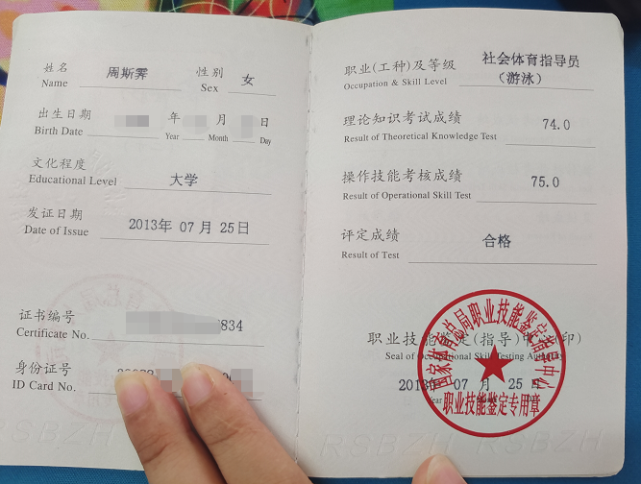 姓名 周斯霁 性别 女
Name Sex
出生日期 年 月 日
Birth Date Year Month Day
文化程度 大学
Educational Level
发证日期 2013年 07 月 25 日
Date of Issue
证书编号 834
Certificate No.
身份证号
ID Card No.
职业(工种)及等级 社会体育指导员
Occupation & Skill Level （游泳）
理论知识考试成绩 74.0
Result of Theoretical Knowledge Test
操作技能考核成绩 75.0
Result of Operational Skill Test
评定成绩 合格
Result of Test
职业技能鉴定(指导)中心(印)
Seal of Occupational Skill Testing Authority
2013年 07 月 25 日
国家体育总局职业技能鉴定指导中心
职业技能鉴定专用章
RSBZH RSBZH